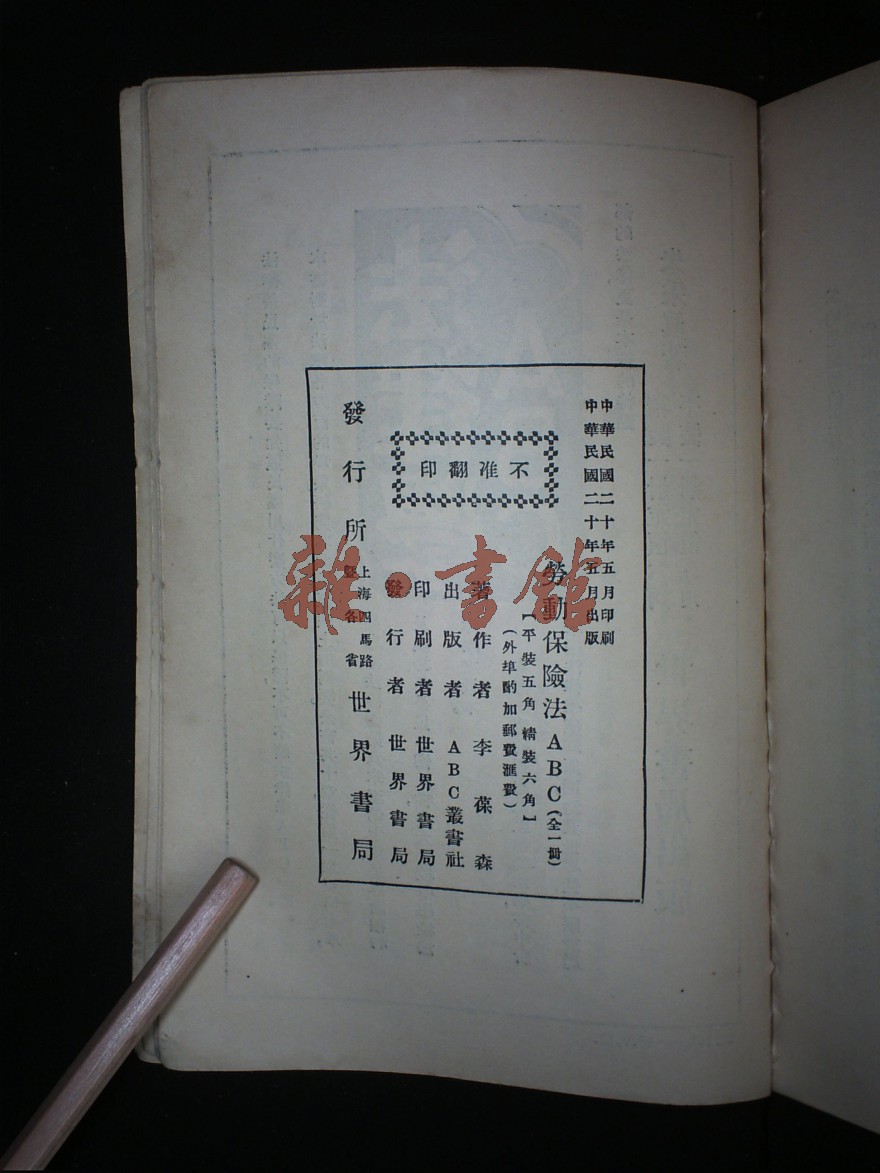 中華民國二十年五月印刷
中華民國二十年五月出版
勞動保險法ABC(全一冊)
【平裝五角 精裝六角】
(外埠酌加郵費滙費)
不准翻印
著作者 李葆森
出版者 ABC叢書社
印刷者 世界書局
發行者 世界書局
發行所 上海四馬路暨各省 世界書局
雜·書館